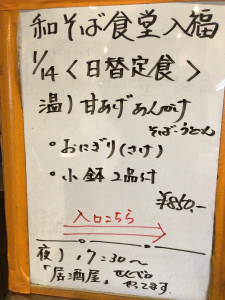 和そば食堂入福
1/14<日替定食>
温)甘あげあんかけ
そば・うどん
・おにぎり(さけ)
・小鉢2品付
¥850,-
入口こちら
夜)17:30〜
「居酒屋」
やってます。